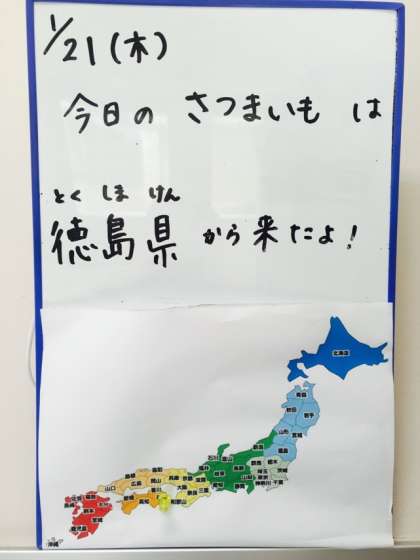 1/21(木)
今日の さつまいも は
とく しま けん
徳島県 から 来たよ!
北海道
青森
秋田 岩手
山形 宮城
福島
新潟
石川 富山
群馬 栃木
福井 長野 埼玉 茨城
岐阜 山梨 東京 千葉
愛知 静岡 神奈川
島根 鳥取
広島 岡山 兵庫 京都 滋賀
山口 香川 大阪 奈良 三重
愛媛 高知 和歌山
佐賀 福岡
長崎 大分
熊本
宮崎
鹿児島
沖縄